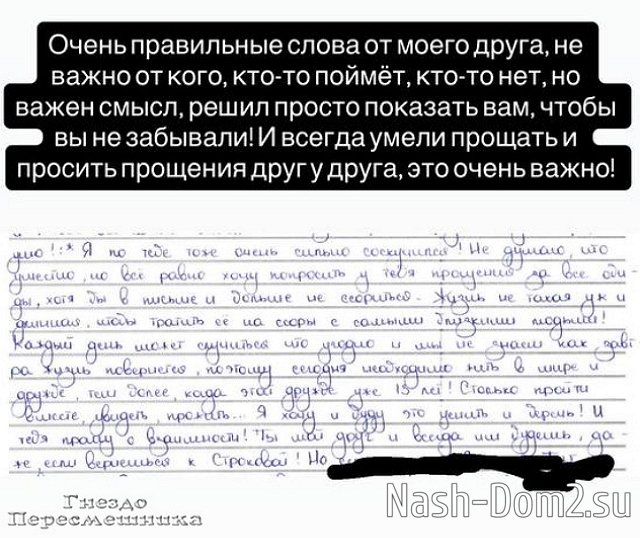 Очень правильные слова от моего друга, не
важно от кого, кто-то поймёт, кто-то нет, но
важен смысл, решил просто показать вам, чтобы
вы не забывали! И всегда умели прощать и
просить прощения друг у друга, это очень важно!
ую!:* Я по тебе тоже очень сильно соскучился! Не думаю, что
уместно, но всё равно хочу попросить у тебя прощения за все оби-
ды, хотя бы в письме и больше не ссориться. Жизнь не такая уж и
длинная, чтобы тратить её на ссоры с самыми близкими людьми!
Каждый день может случиться что угодно и мы не знаем как завт
ра жизнь повернётся, поэтому сегодня необходимо жить в мире и
дружбе, тем более, когда этой дружбе уже 13 лет! Столько пройти
вместе, увидеть, прожить... Я хочу и буду это ценить и беречь! И
тебя прошу о взаимности! Ты мой друг и всегда им будешь, да-
же, если вернёшься к Строковой! Но
Гнездо
Пересмешника
Nash-Dom2.su